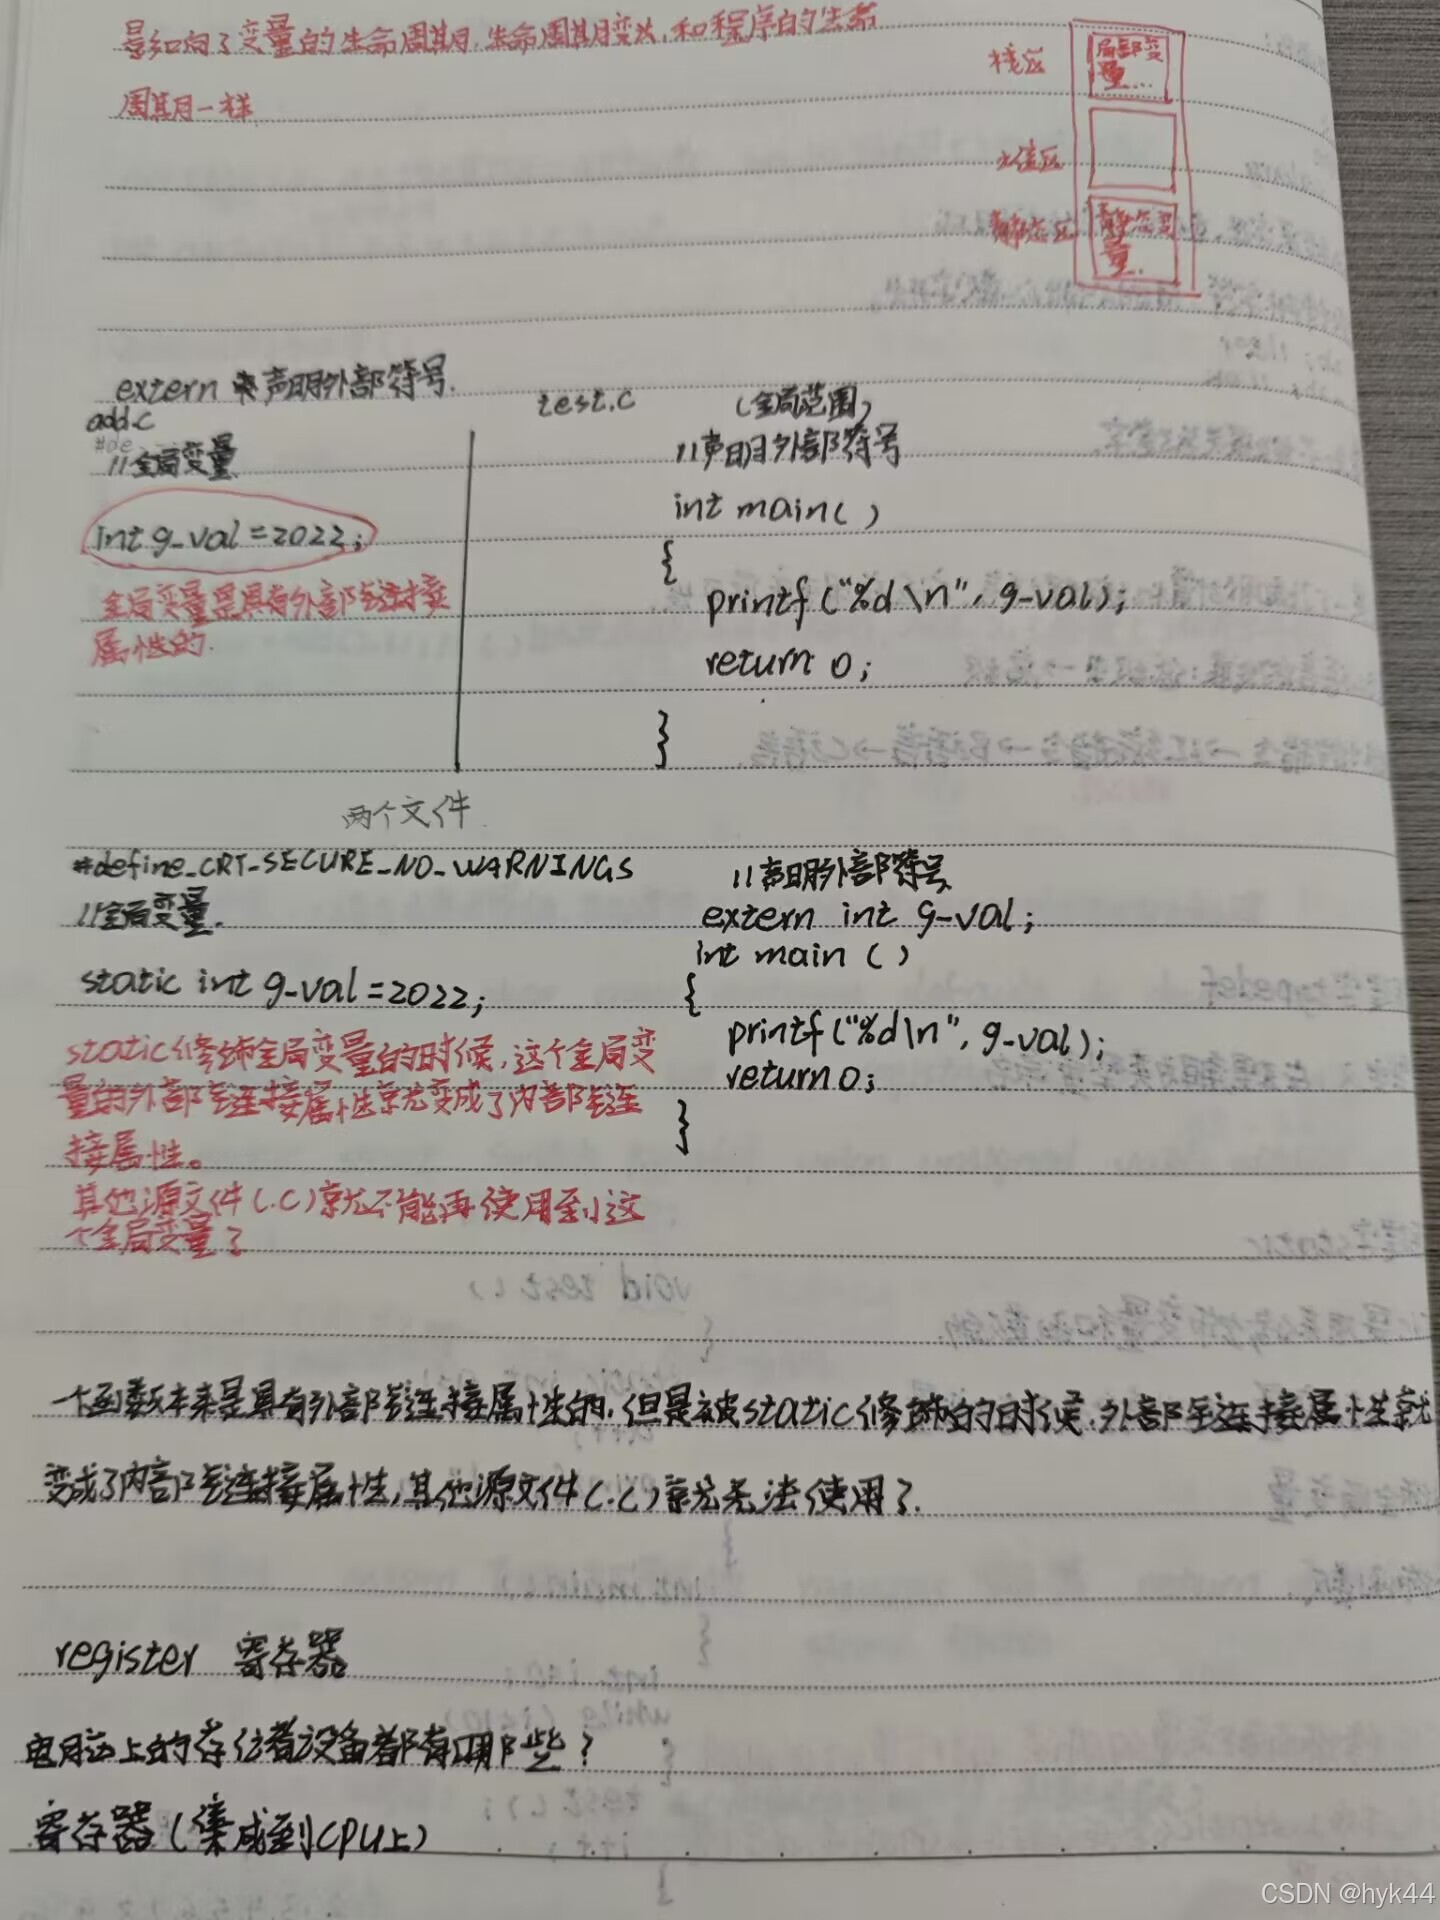 是影响了变量的生命周期,生命周期变长,和程序的生命
周期一样
栈区
局部变
量...
静态区
静态变
量.
extern 来声明外部符号.
add.c
#de
//全局变量
int g_val=2022;
全局变量是具有外部链接
属性的.
test.c
(全局范围)
//声明外部符号
int main()
{
printf("%d\n", g_val);
return 0;
}
两个文件
#define_CRT_SECURE_NO_WARNINGS
//全局变量.
static int g_val=2022;
static修饰全局变量的时候,这个全局变
量的外部链接属性就变成了内部链
接属性。
其他源文件(.c)就不能再使用到这
个全局变量了
//声明外部符号
extern int g_val;
int main ()
{
printf("%d\n", g_val);
return 0;
}
一个函数本来是具有外部链接属性的,但是被static修饰的时候,外部链接属性就
变成了内部链接属性,其他源文件(.c)就无法使用了.
register 寄存器
电脑上的存储设备都有哪些?
寄存器(集成到CPU上)
CSDN @hyk44